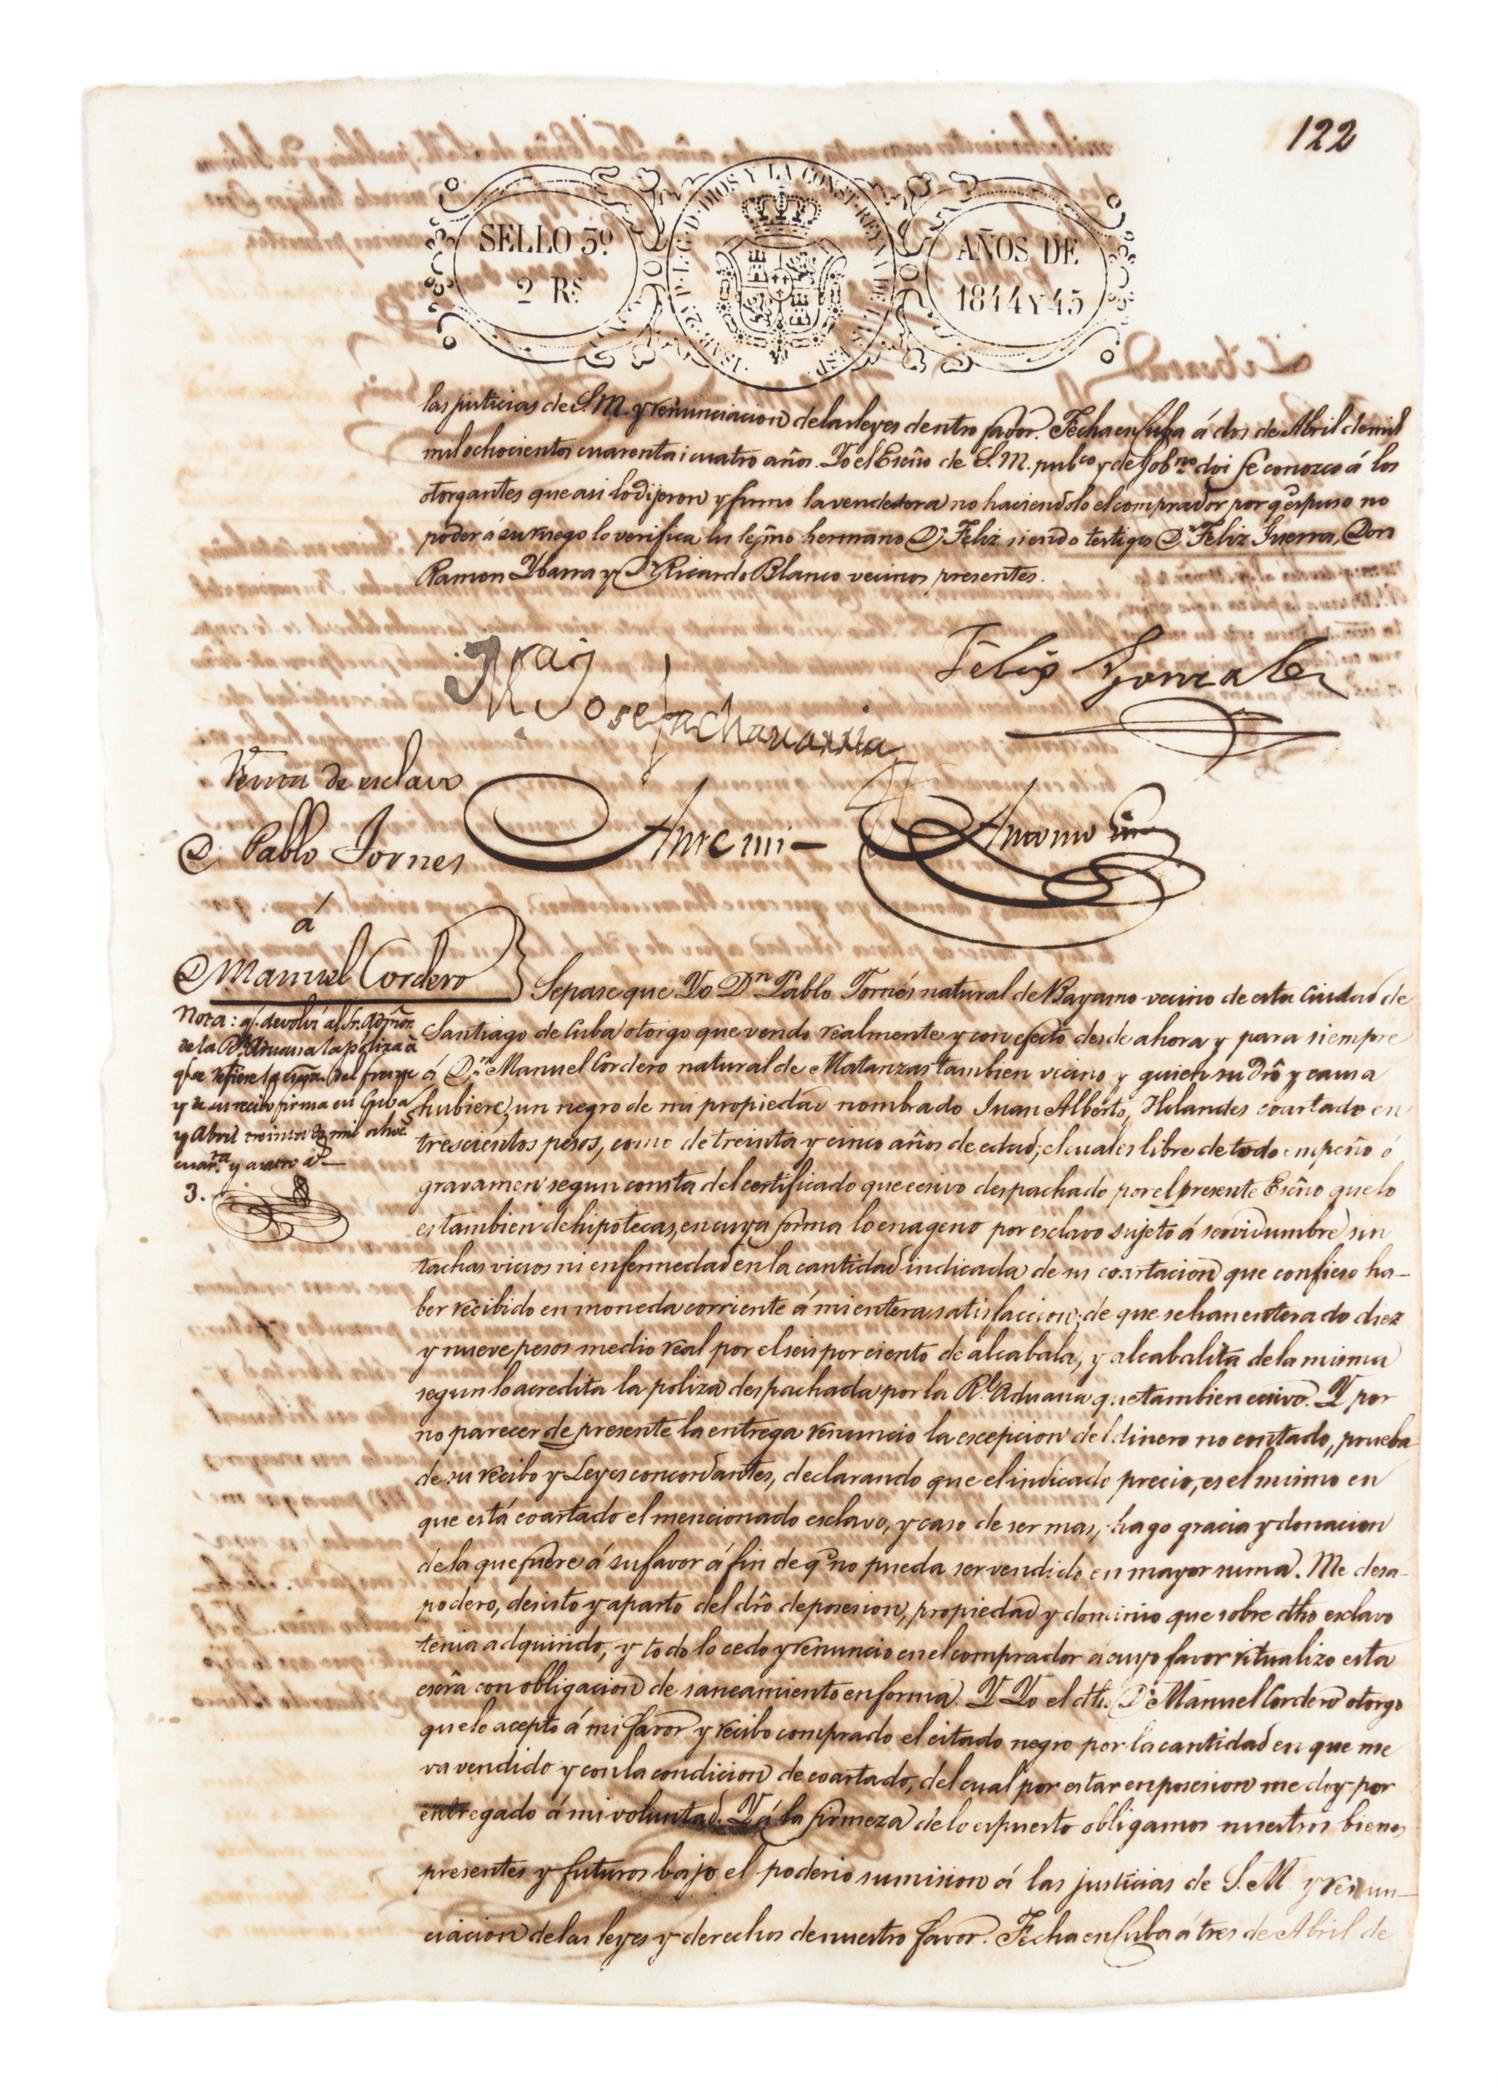 122
SELLO 3º
2 Rs
ISAB. 2ª P. L. G. D. DIOS Y LA CONST. REYNA DE LAS ESP.
AÑOS DE
1844 Y 45
las justicias de S.M. y renunciacion de las leyes de ntro favor. Fecha en Cuba á dos de Abril de mil
mil ochocientos cuarenta i cuatro años. Yo el Escño de S. M. pubco y de Gobno doi fe conozco á los
otorgantes que asi lo dijeron y firmó la vendedora no haciendolo el comprador por q. espuso no
poder á su ruego lo verifica su legmo hermano Dn Feliz siendo testigos Dn Feliz Guerra, Don
Ramon Ybarra y Dn Ricardo Blanco vecinos presentes.
Josefa chavarria
Felix Gonzalez
Venta de esclavo
D. Pablo Tornes
á
D Manuel Cordero
Ante mi
Antonio
Sepase que Yo Dn Pablo Tornés natural de Bayamo vecino de esta Ciudad de
Santiago de Cuba otorgo que vendo realmente y con efecto desde ahora y para siempre
á Dn Manuel Cordero natural de Matanzas tambien vecino y quien su dro y causa
hubiere, un negro de mi propiedad nombrado Juan Alberto, Holandes coartado en
trescientos pesos, como de treinta y cinco años de edad; el cual es libre de todo empeño ó
gravamen segun consta del certificado que ecsivo despachado por el presente Escño que lo
es tambien de hipotecas, en cuya forma lo enageno por esclavo sujeto á servidumbre sin
tachas vicios ni enfermedad en la cantidad indicada de su coartacion que confieso ha-
ber recibido en moneda corriente á mi entera satisfaccion; de que se han enterado diez
y nueve pesos medio real por el seis por ciento de alcabala, y alcabalita de la misma
segun lo acredita la poliza despachada por la Rl Aduana que tambien ecsivo. Y por
no parecer de presente la entrega renuncio la escepcion del dinero no contado, prueba
de su recibo y Leyes concordantes, declarando que el indicado precio, es el mismo en
que está coartado el mencionado esclavo, y caso de ser mas, hago gracia y donacion
de la que fuere á su favor á fin de q. no pueda ser vendido en mayor suma. Me desa-
podero, desisto y aparto del dro de posesion, propiedad y dominio que sobre dho esclavo
tenia adquirido, y todo lo cedo y renuncio en el comprador á cuyo favor ritualizo esta
escra con obligacion de saneamiento en forma. Y Yo el dho Dn Manuel Cordero otorgo
que lo acepto á mi favor y recibo comprado el citado negro por la cantidad en que me
va vendido y con la condicion de coartado, del cual por estar en posesion me doy por
entregado á mi voluntad. Y á la firmeza de lo espuesto obligamos nuestros bienes
presentes y futuros bajo el poderio sumision á las justicias de S. M. y renun-
ciacion de las leyes y derechos de nuestro favor. Fecha en Cuba á tres de Abril de
Nota: q. devolví al Sr. Admor
de la Rl Aduana la poliza á
que se refiere la escra del frente
y de su recibo firma en Cuba
y Abril treinta de mil ochos
cuarta y cuatro as
3.